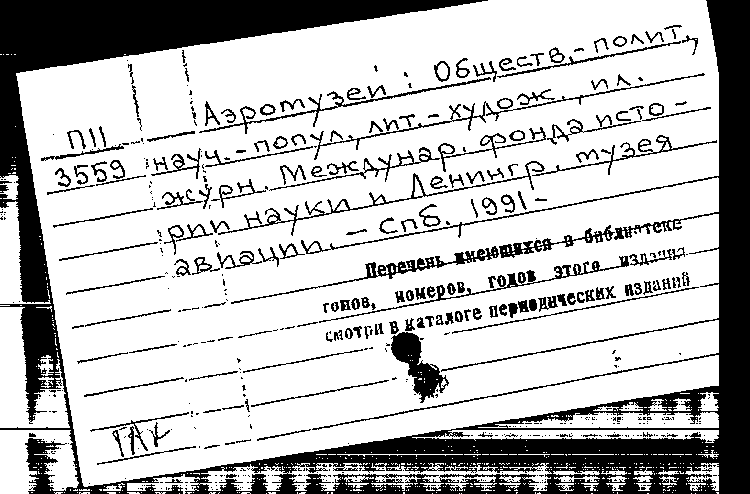 Аэромузей : Обществ.-полит.,
П11
3559
науч.-попул., лит.-худож., ил.
журн. Междунар. фонда исто-
рии науки и Ленингр. музея
авиации. – Спб., 1991-
Перечень имеющихся в библиотеке
годов, номеров, годов этого издания
смотри в каталоге периодических изданий